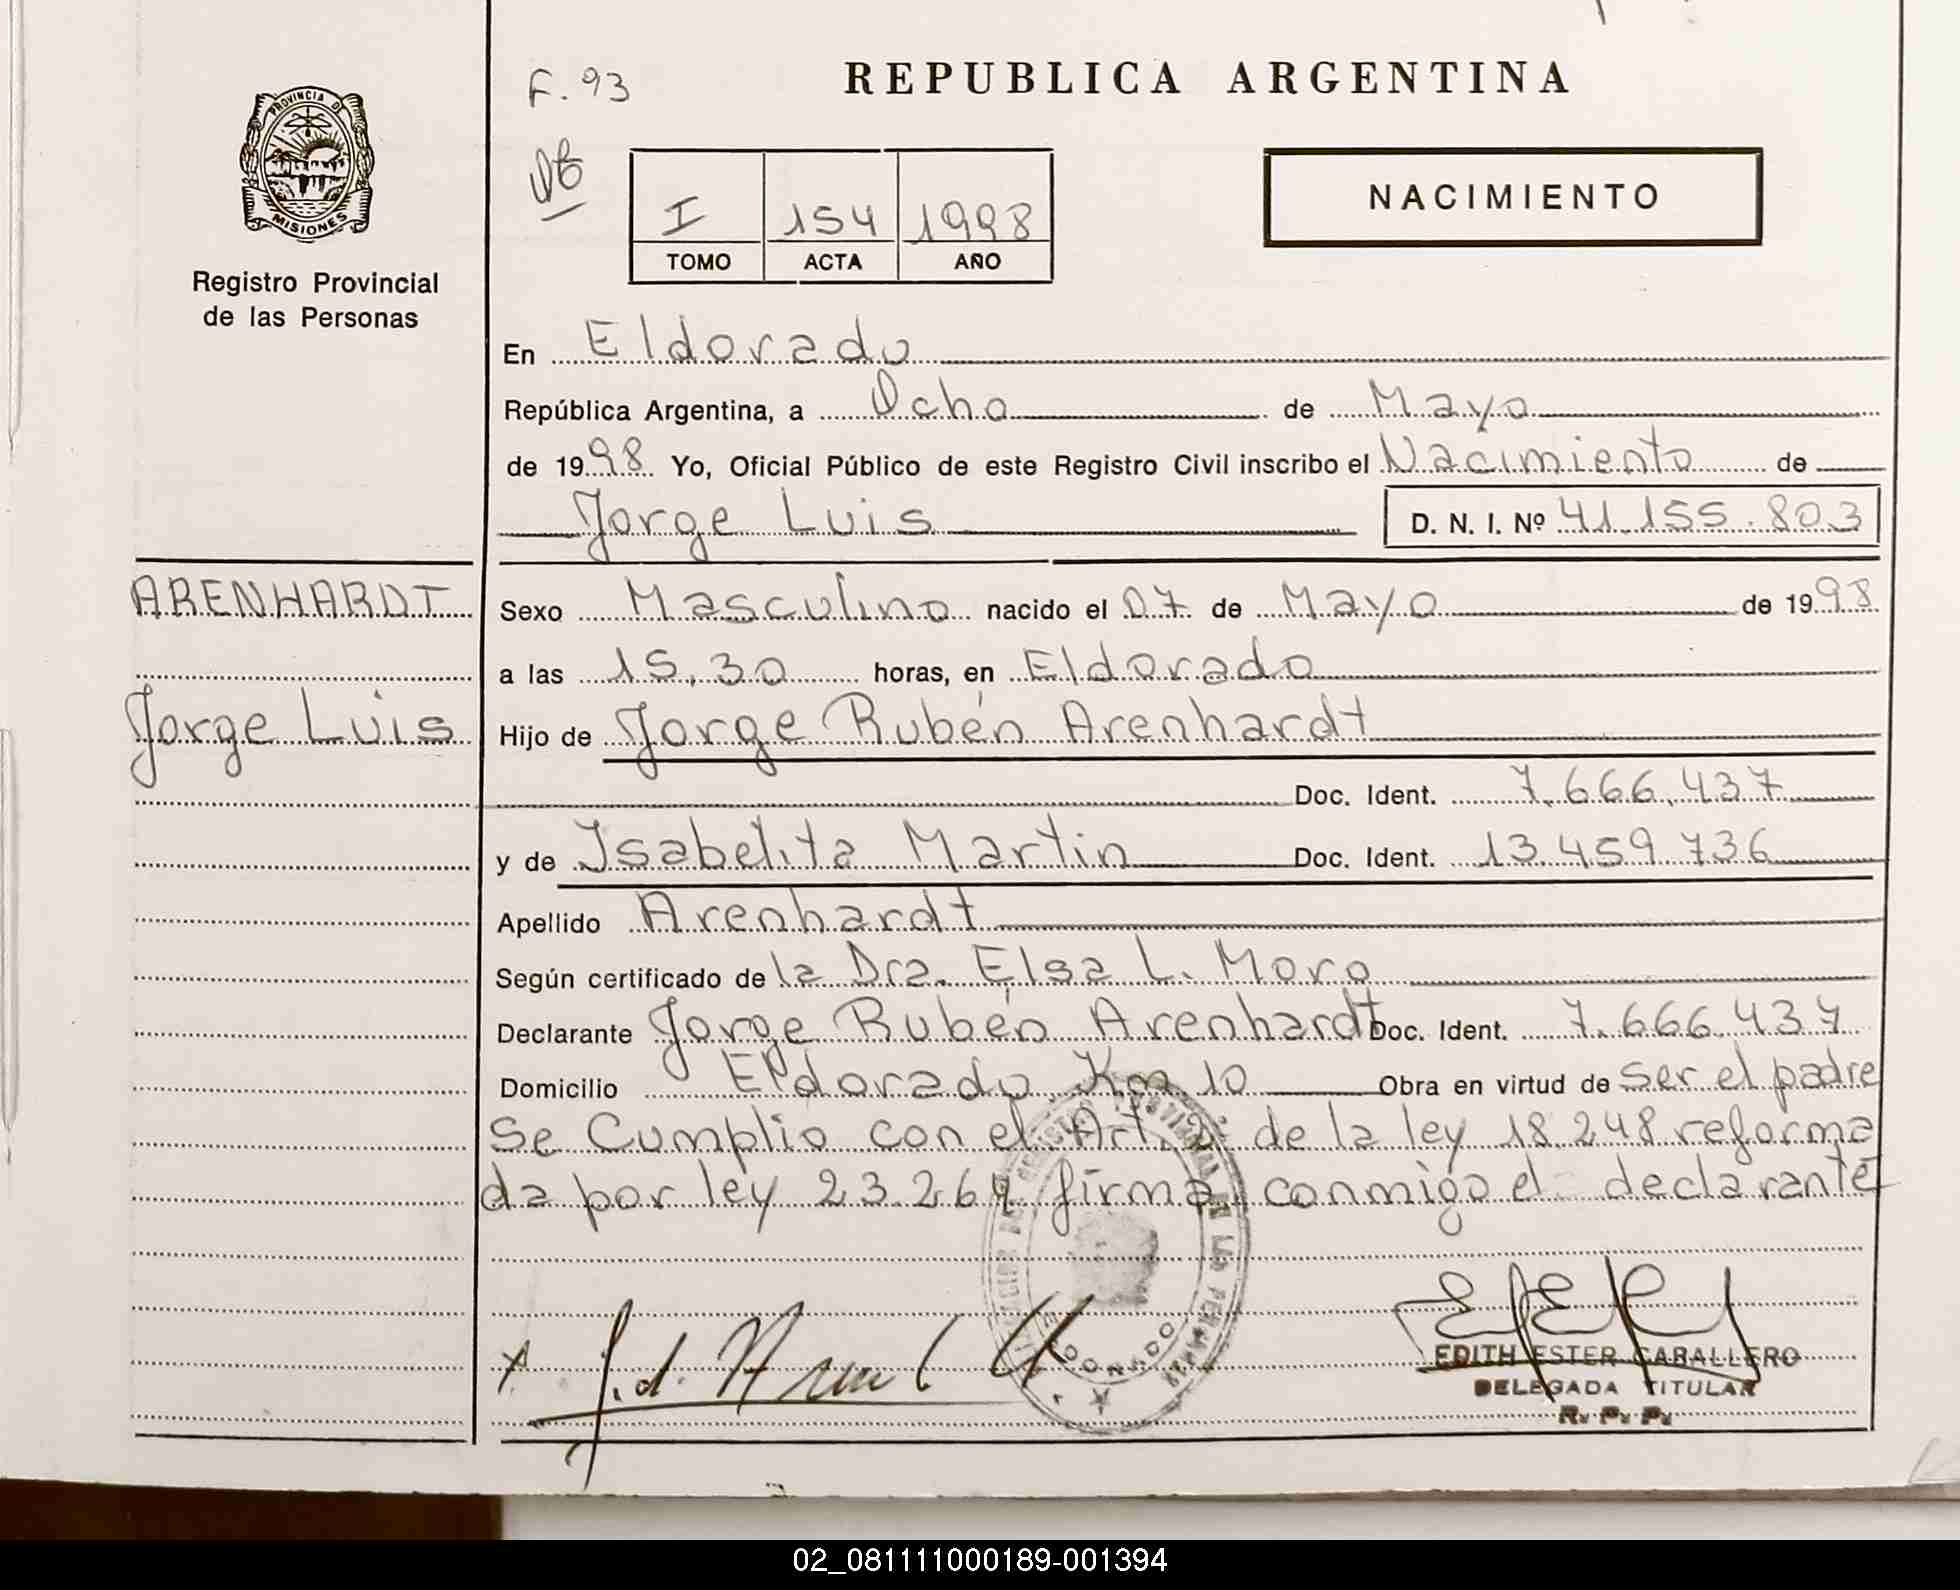 F. 93
REPUBLICA ARGENTINA
PROVINCIA DE
MISIONES
Registro Provincial
de las Personas
I 154 1998
TOMO ACTA AÑO
NACIMIENTO
En Eldorado
República Argentina, a Ocho de Mayo
de 1998 Yo, Oficial Público de este Registro Civil inscribo el Nacimiento de
Jorge Luis D. N. I. Nº 41.155.803
ARENHARDT
Jorge Luis
Sexo Masculino nacido el 07 de Mayo de 1998
a las 15,30 horas, en Eldorado
Hijo de Jorge Rubén Arenhardt
Doc. Ident. 7.666.437
y de Isabelita Martin Doc. Ident. 13.459.736
Apellido Arenhardt
Según certificado de la Dra. Elsa L. Moro
Declarante Jorge Rubén Arenhardt Doc. Ident. 7.666.437
Domicilio Eldorado Km 10 Obra en virtud de ser el padre
Se Cumplio con el Art. 2º de la ley 18.248 reforma
da por ley 23.264 firma conmigo el declarante
EDITH ESTER CABALLERO
DELEGADA TITULAR
R. P. P.
02_081111000189-001394